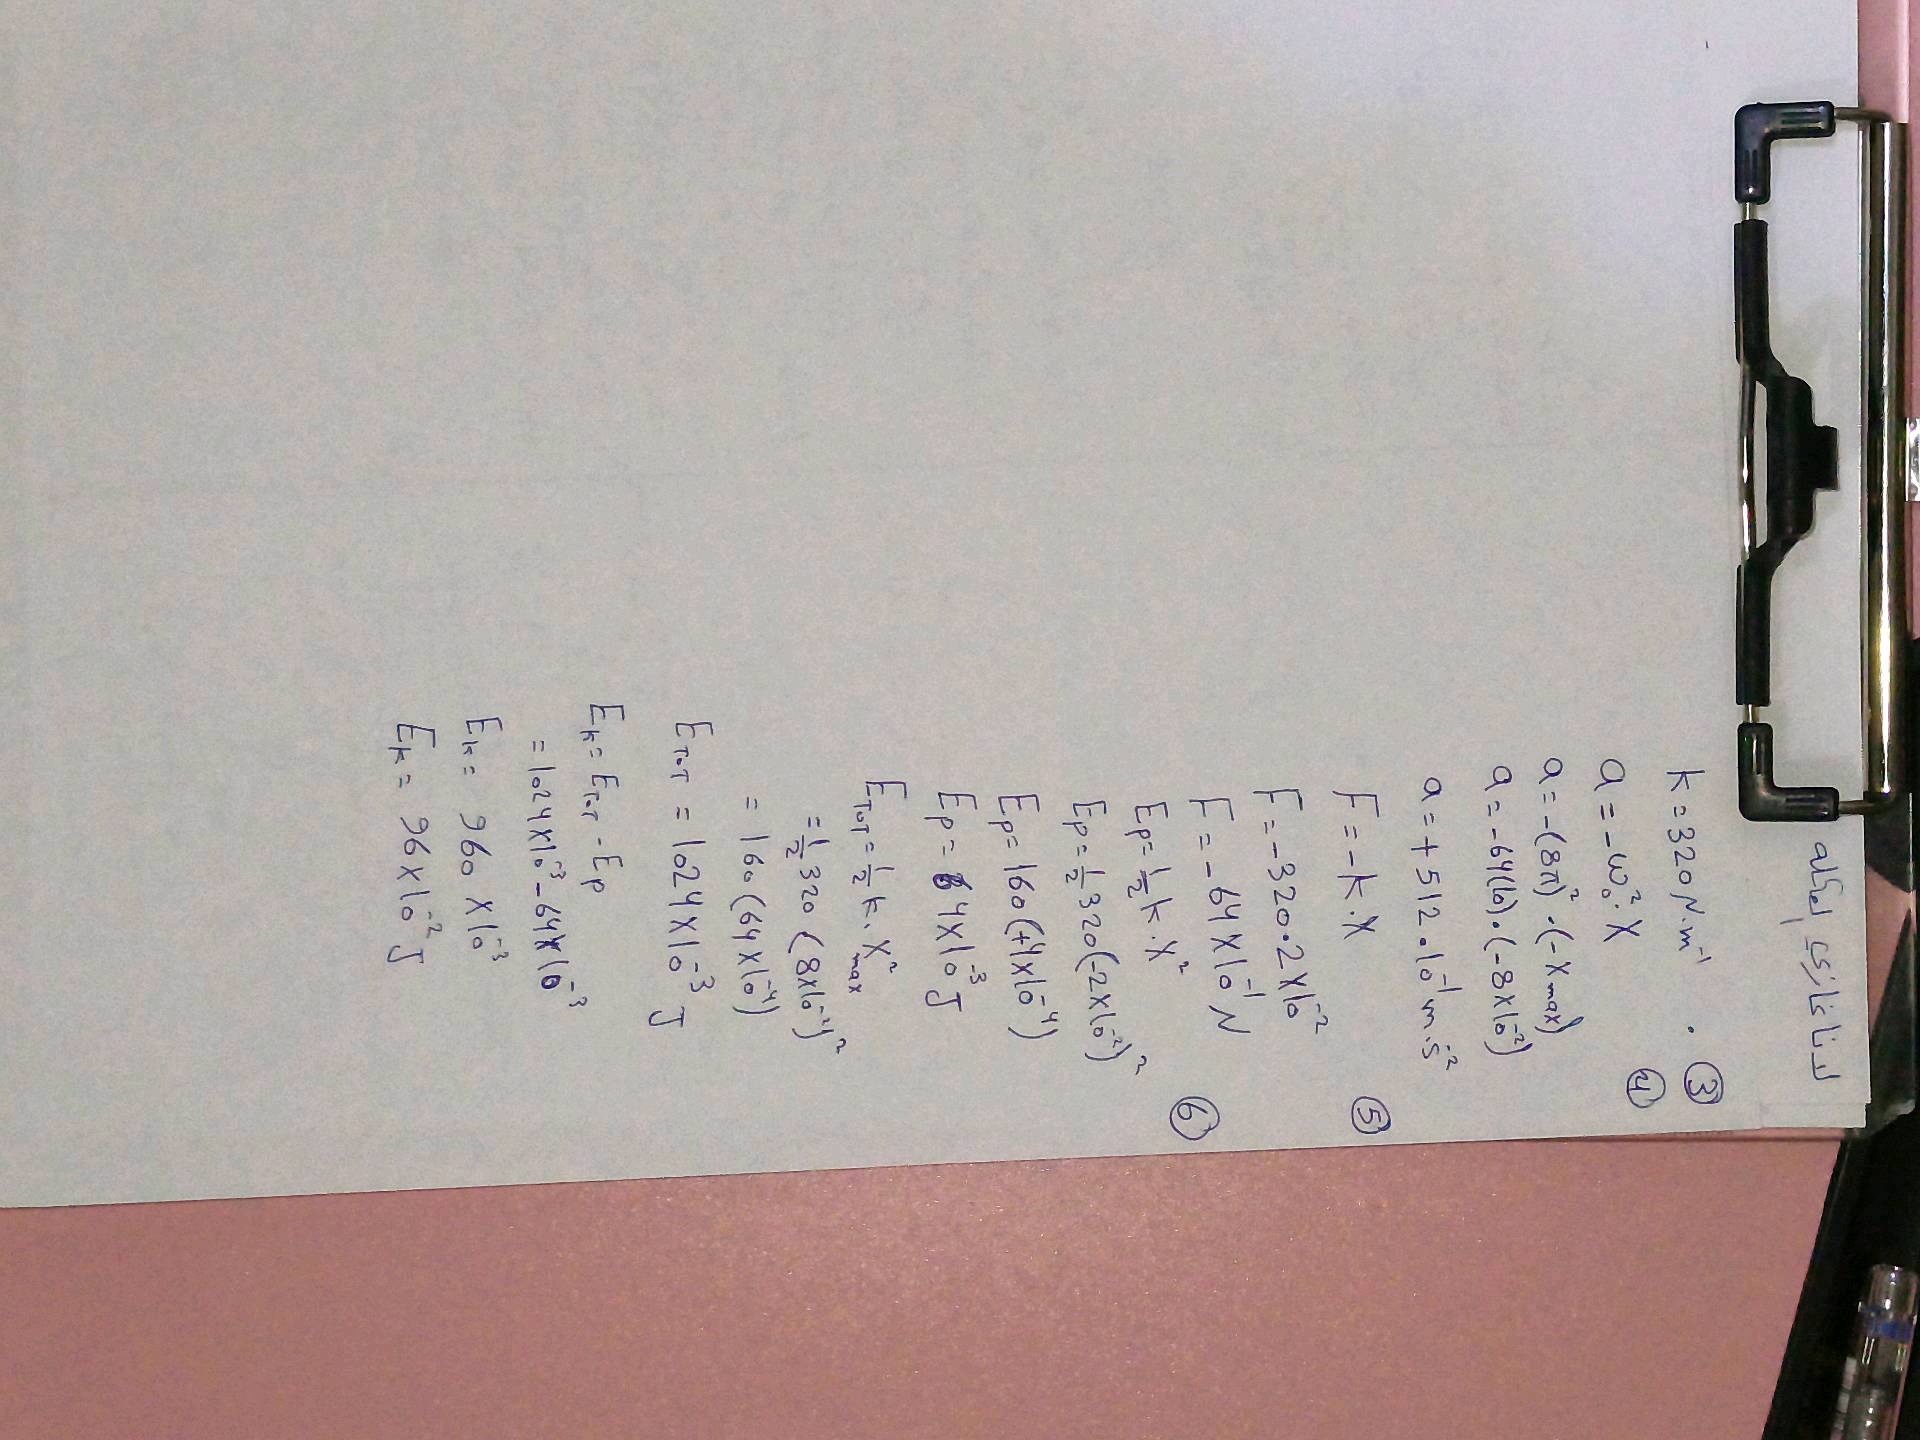 k = 320 N.m⁻¹ . ③
a = -ω₀². x ④
a = -(8π)² . (-Xmax)
a = -64(10) . (-8×10⁻²)
a = + 512 . 10⁻¹ m.s⁻²
F = -k . x ⑤
F = -320 . 2×10⁻²
F = -64×10⁻¹ N
Ep = 1/2 k . x² ⑥
Ep = 1/2 320 (-2×10⁻²)²
Ep = 160 (+4×10⁻⁴)
Ep = 64×10⁻³ J
ETOT = 1/2 k . X²max
= 1/2 320 (8×10⁻²)²
= 160 (64×10⁻⁴)
ETOT = 1024×10⁻³ J
Ek = ETOT - Ep
= 1024×10⁻³ - 64×10⁻³
Ek = 960 ×10⁻³
Ek = 96×10⁻² J